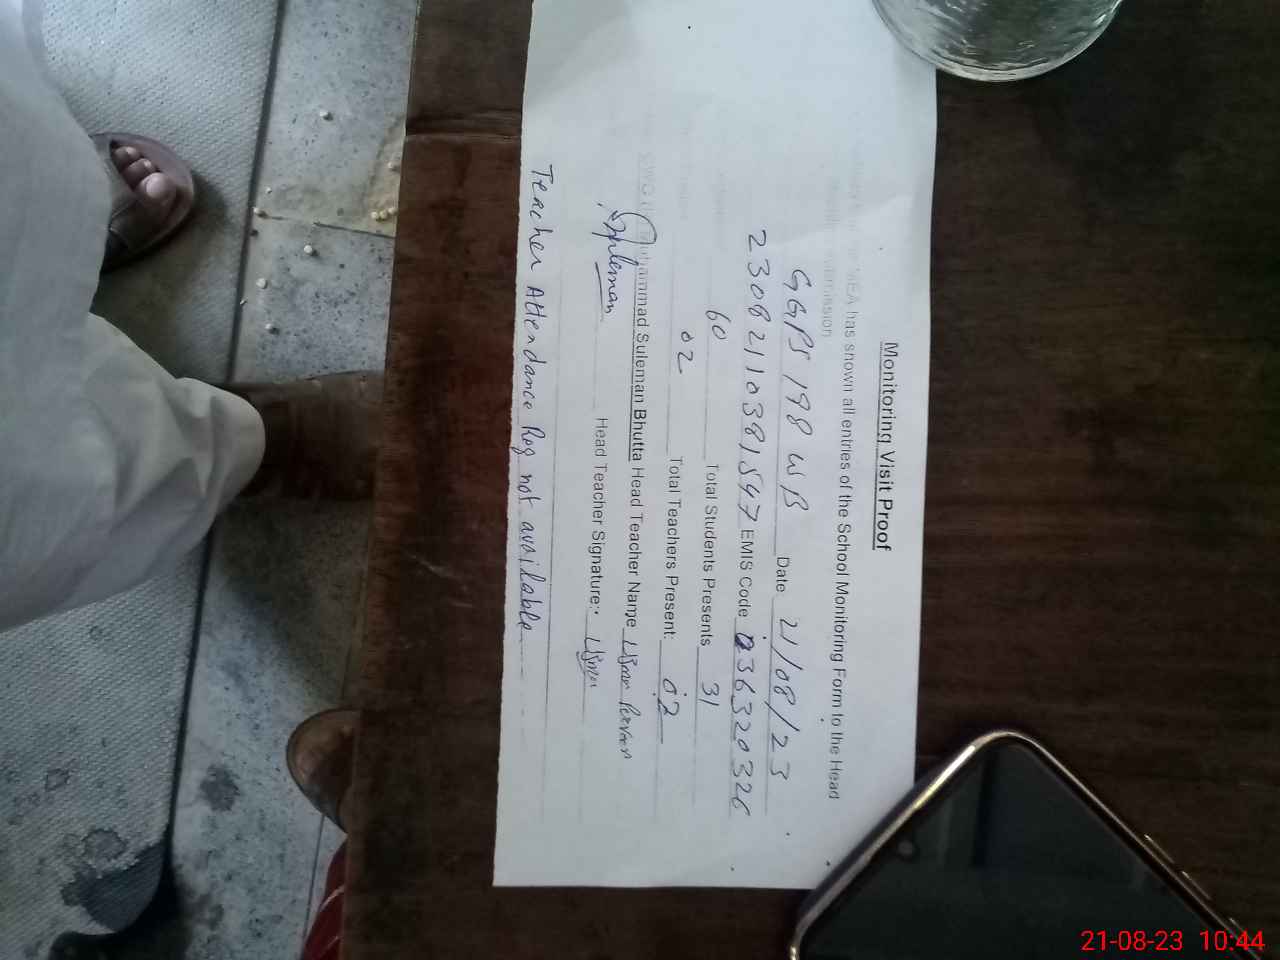 Monitoring Visit Proof
MEA has snown all entries of the School Monitoring Form to the Head
GGPS 198 WB Date 21/08/23
23082110381547 EMIS Code 36320326
60 Total Students Presents 31
02 Total Teachers Present: 02
Muhammad Suleman Bhutta Head Teacher Name
Suleman Head Teacher Signature:
Teacher Attendance Reg not available
21-08-23 10:44